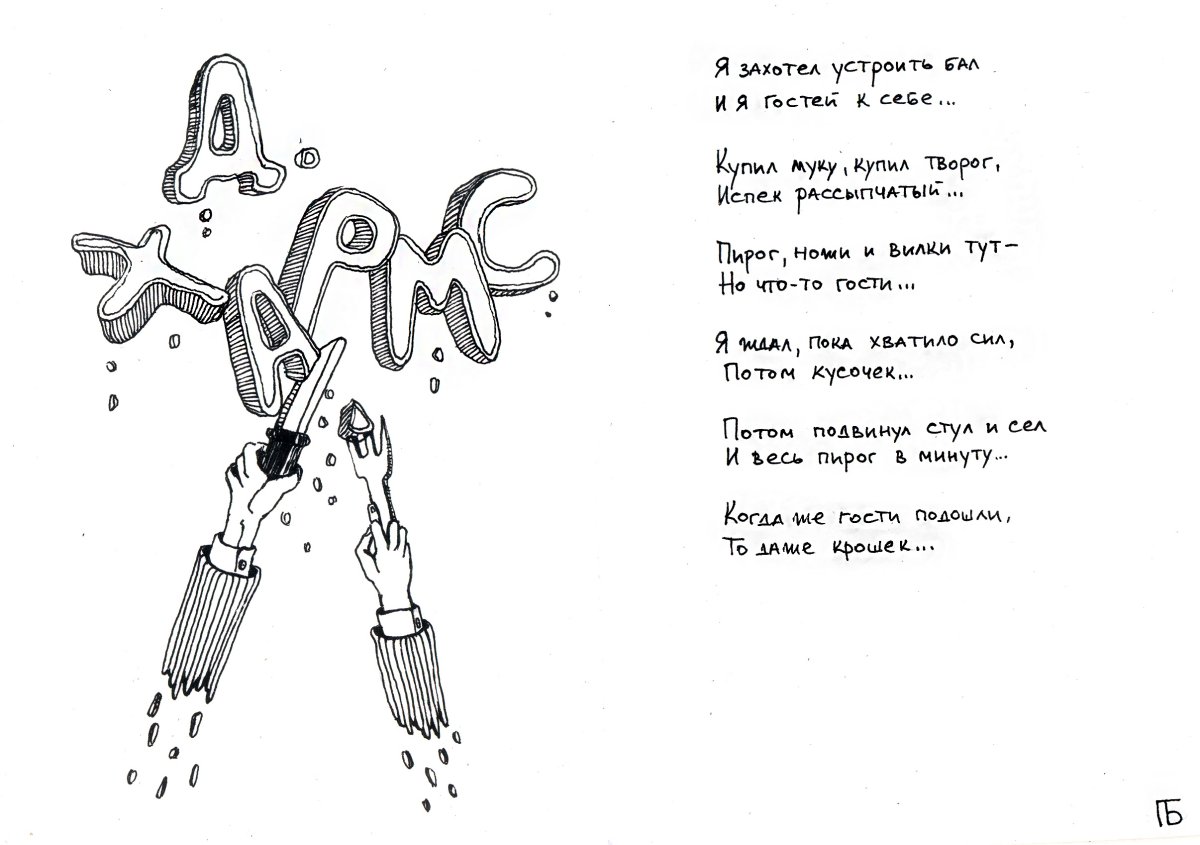 Д
ХАРМС
Я захотел устроить бал
и я гостей к себе...
Купил муку, купил творог,
Испек рассыпчатый...
Пирог, ножи и вилки тут–
Но что-то гости...
Я ждал, пока хватило сил,
Потом кусочек...
Потом подвинул стул и сел
И весь пирог в минуту...
Когда же гости подошли,
То даже крошек...
ПБ